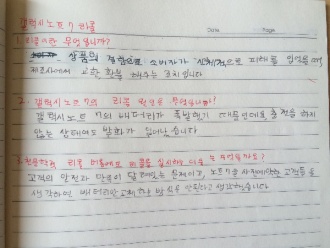 갤럭시노트7 리콜
Date Page
1. 리콜이란 무엇입니까?
상품의 결함으로 소비자가 신체적으로 피해를 입었을때
제조사에서 교환, 환불 해주는 조치입니다
2. 갤럭시노트 7의 리콜 원인은 무엇입니까?
갤럭시노트 7의 배터리가 폭발했기 때문인데요 충전을 하지
않는 상태에도 발화가 일어났습니다
3. 리콜 실시하는 무엇일까요?
고객의 안전과 달려있는 문제이고, 노트7을 고객들을
생각하면 배터리만 교체하는 방식은 안된다고 생각했습니다